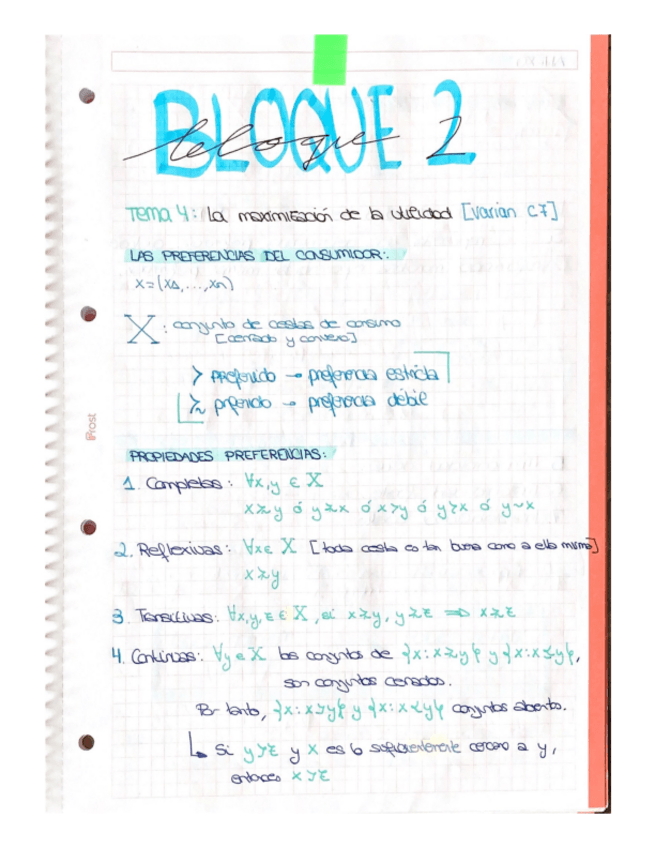 BLOQUE 2
bloque
Tema 4: La maximización de la utilidad [Varian C7]
LAS PREFERENCIAS DEL CONSUMIDOR:
x=(x₁,...,xn)
X: conjunto de cestas de consumo
[cerrado y convexo]
≻ preferido → preferencia estricta
≿ preferido → preferencia débil
PROPIEDADES PREFERENCIAS:
1. Completas: ∀x,y ∈ X
x≿y ó y≿x ó x≻y ó y≻x ó y~x
2. Reflexivas: ∀x∈ X [toda cesta es tan buena como a ella misma]
x≿y
3. Transitivas: ∀x,y,z ∈ X, si x≿y, y≿z ⇒ x≿z
4. Continuas: ∀y∈X los conjuntos de {x:x≿y} y {x:x≾y},
son conjuntos cerrados.
Por tanto, {x:x≻y} y {x:x≺y} conjuntos abierto.
↳ Si y≻z y x es lo suficientemente cercano a y,
entonces x≻z
Prost